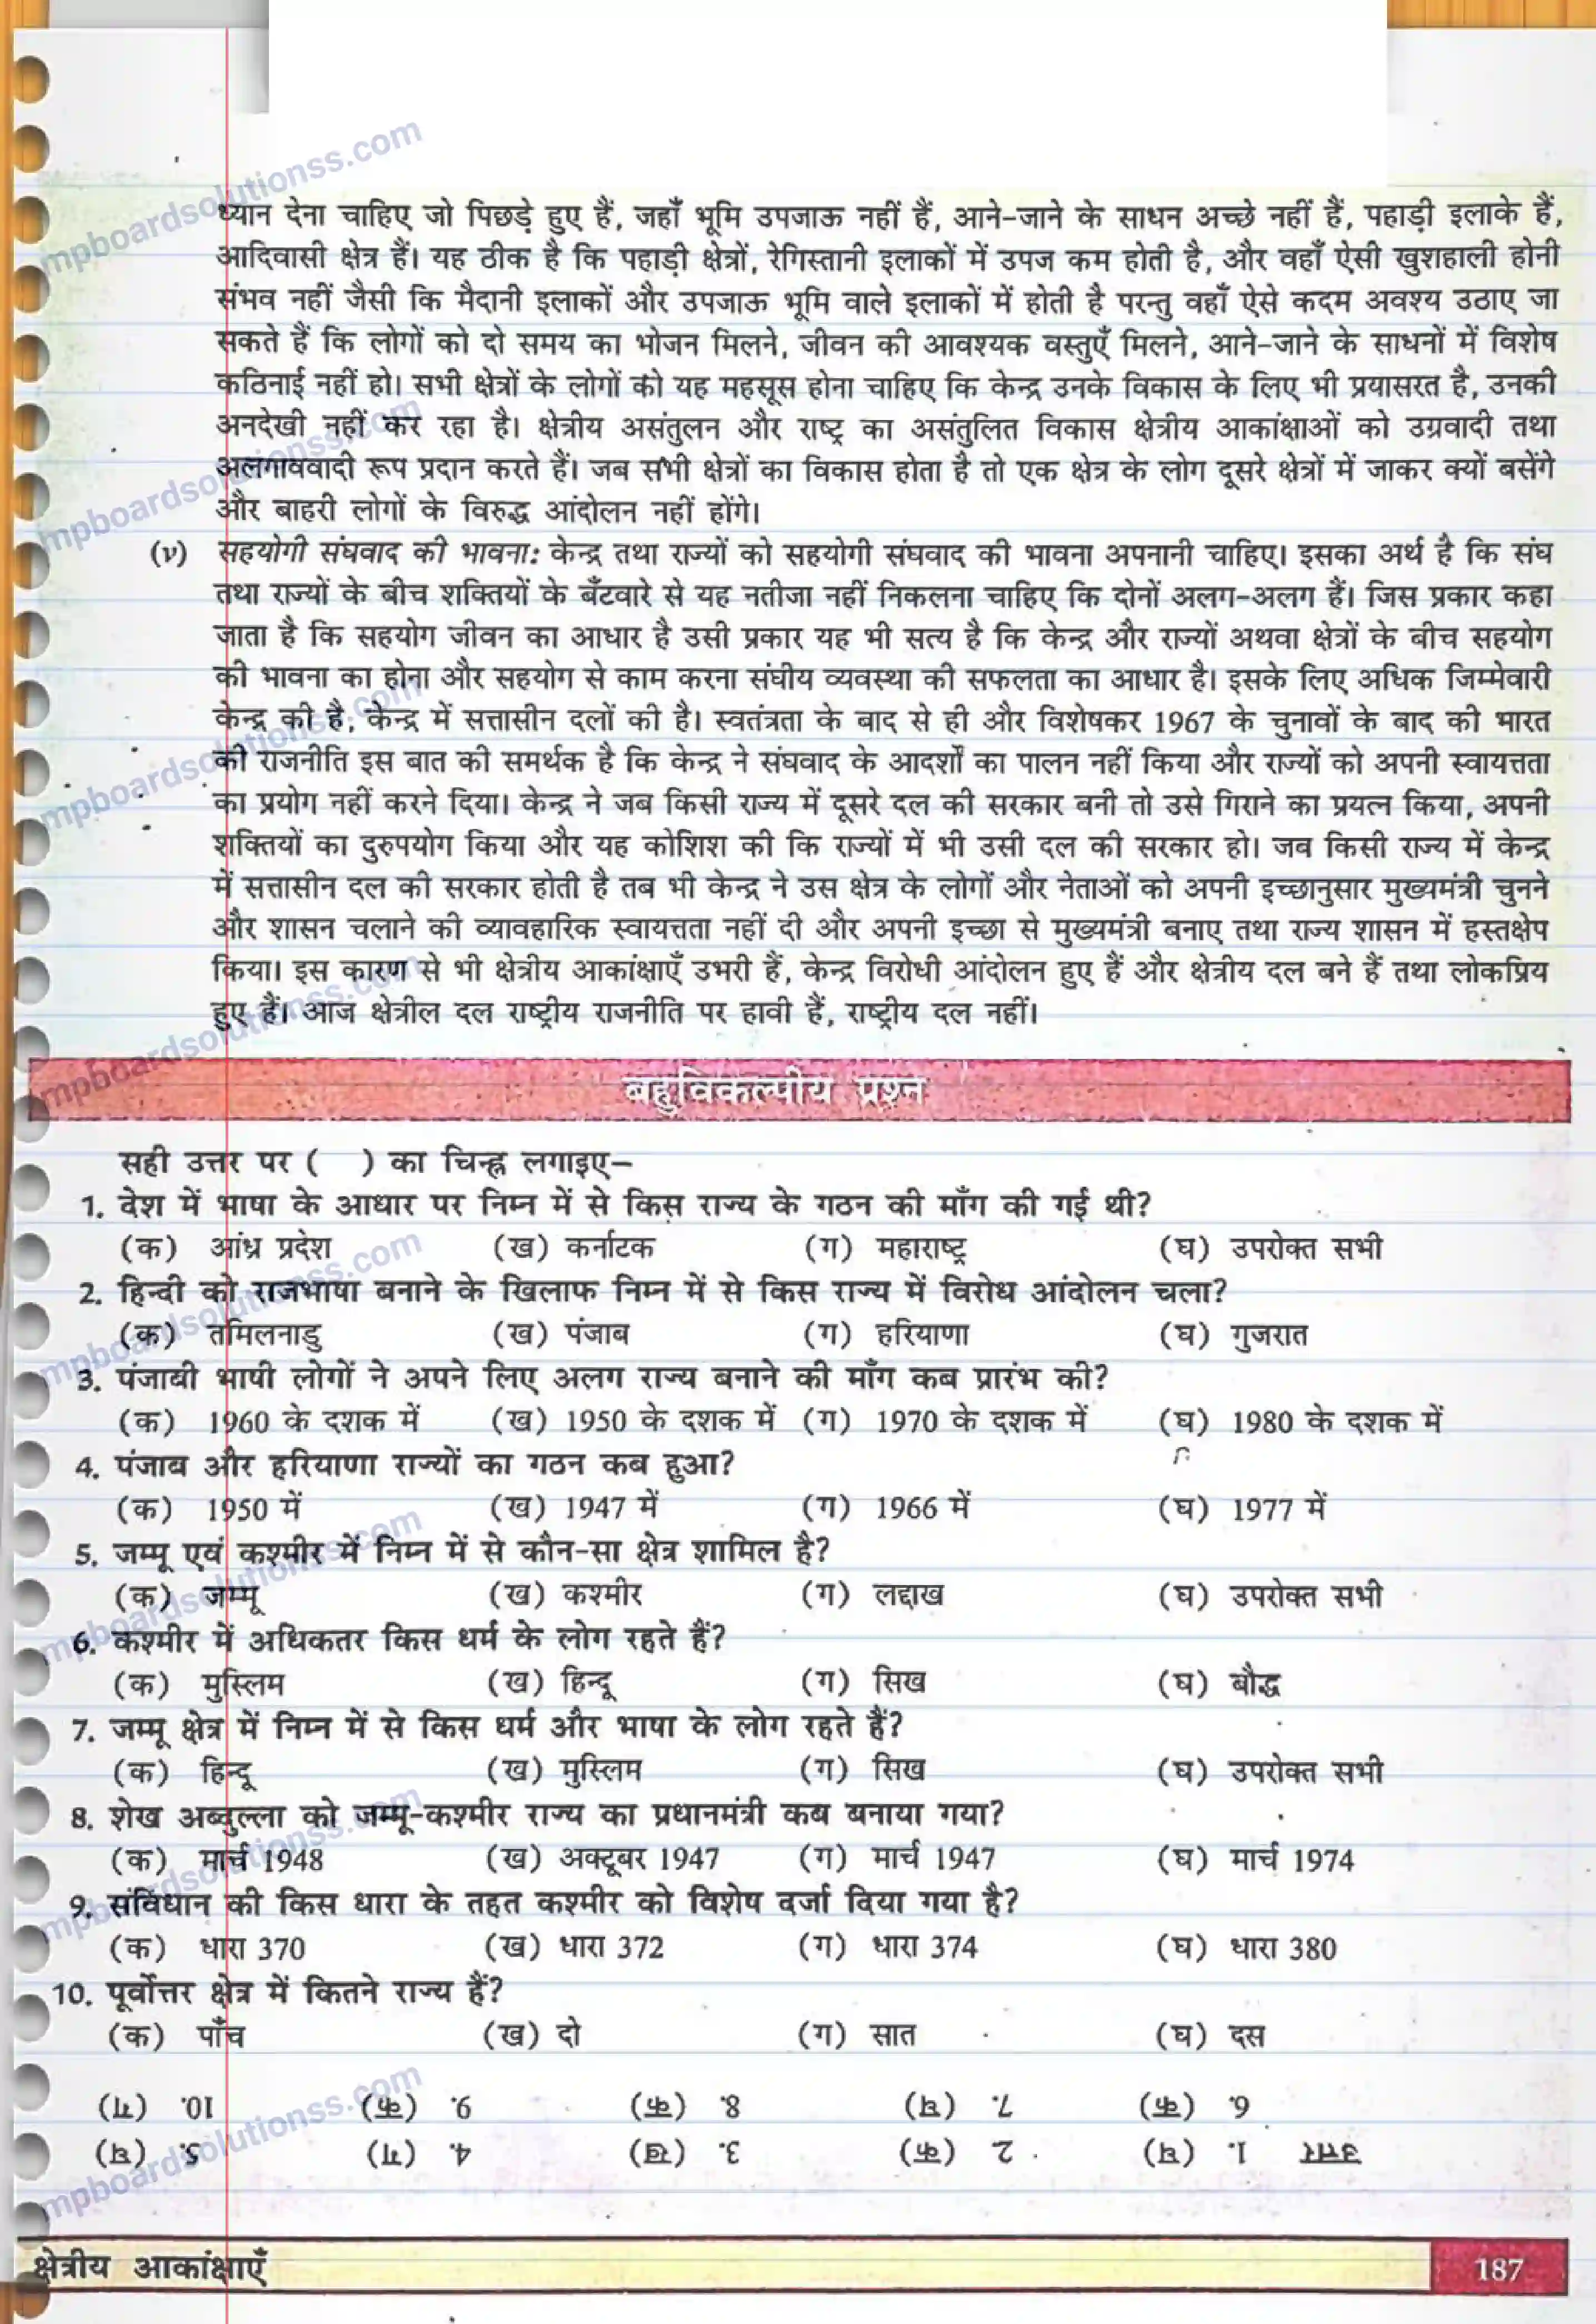 ध्यान देना चाहिए जो पिछड़े हुए हैं, जहाँ भूमि उपजाऊ नहीं हैं, आने-जाने के साधन अच्छे नहीं हैं, पहाड़ी इलाके हैं,
आदिवासी क्षेत्र हैं। यह ठीक है कि पहाड़ी क्षेत्रों, रेगिस्तानी इलाकों में उपज कम होती है, और वहाँ ऐसी खुशहाली होनी
संभव नहीं जैसी कि मैदानी इलाकों और उपजाऊ भूमि वाले इलाकों में होती है परन्तु वहाँ ऐसे कदम अवश्य उठाए जा
सकते हैं कि लोगों को दो समय का भोजन मिलने, जीवन की आवश्यक वस्तुएँ मिलने, आने-जाने के साधनों में विशेष
कठिनाई नहीं हो। सभी क्षेत्रों के लोगों को यह महसूस होना चाहिए कि केन्द्र उनके विकास के लिए भी प्रयासरत है, उनकी
अनदेखी नहीं कर रहा है। क्षेत्रीय असंतुलन और राष्ट्र का असंतुलित विकास क्षेत्रीय आकांक्षाओं को उग्रवादी तथा
अलगाववादी रूप प्रदान करते हैं। जब सभी क्षेत्रों का विकास होता है तो एक क्षेत्र के लोग दूसरे क्षेत्रों में जाकर क्यों बसेंगे
और बाहरी लोगों के विरुद्ध आंदोलन नहीं होंगे।
(v) सहयोगी संघवाद की भावना: केन्द्र तथा राज्यों को सहयोगी संघवाद की भावना अपनानी चाहिए। इसका अर्थ है कि संघ
तथा राज्यों के बीच शक्तियों के बँटवारे से यह नतीजा नहीं निकलना चाहिए कि दोनों अलग-अलग हैं। जिस प्रकार कहा
जाता है कि सहयोग जीवन का आधार है उसी प्रकार यह भी सत्य है कि केन्द्र और राज्यों अथवा क्षेत्रों के बीच सहयोग
की भावना का होना और सहयोग से काम करना संघीय व्यवस्था की सफलता का आधार है। इसके लिए अधिक जिम्मेवारी
केन्द्र की है, केन्द्र में सत्तासीन दलों की है। स्वतंत्रता के बाद से ही और विशेषकर 1967 के चुनावों के बाद की भारत
की राजनीति इस बात की समर्थक है कि केन्द्र ने संघवाद के आदर्शों का पालन नहीं किया और राज्यों को अपनी स्वायत्तता
का प्रयोग नहीं करने दिया। केन्द्र ने जब किसी राज्य में दूसरे दल की सरकार बनी तो उसे गिराने का प्रयत्न किया, अपनी
शक्तियों का दुरुपयोग किया और यह कोशिश की कि राज्यों में भी उसी दल की सरकार हो। जब किसी राज्य में केन्द्र
में सत्तासीन दल की सरकार होती है तब भी केन्द्र ने उस क्षेत्र के लोगों और नेताओं को अपनी इच्छानुसार मुख्यमंत्री चुनने
और शासन चलाने की व्यावहारिक स्वायत्तता नहीं दी और अपनी इच्छा से मुख्यमंत्री बनाए तथा राज्य शासन में हस्तक्षेप
किया। इस कारण से भी क्षेत्रीय आकांक्षाएँ उभरी हैं, केन्द्र विरोधी आंदोलन हुए हैं और क्षेत्रीय दल बने हैं तथा लोकप्रिय
हुए हैं। आज क्षेत्रील दल राष्ट्रीय राजनीति पर हावी हैं, राष्ट्रीय दल नहीं।
बहुविकल्पीय प्रश्न
सही उत्तर पर ( ) का चिन्ह्न लगाइए–
1. देश में भाषा के आधार पर निम्न में से किस राज्य के गठन की माँग की गई थी?
(क) आंध्र प्रदेश (ख) कर्नाटक (ग) महाराष्ट्र (घ) उपरोक्त सभी
2. हिन्दी को राजभाषा बनाने के खिलाफ निम्न में से किस राज्य में विरोध आंदोलन चला?
(क) तमिलनाडु (ख) पंजाब (ग) हरियाणा (घ) गुजरात
3. पंजाबी भाषी लोगों ने अपने लिए अलग राज्य बनाने की माँग कब प्रारंभ की?
(क) 1960 के दशक में (ख) 1950 के दशक में (ग) 1970 के दशक में (घ) 1980 के दशक में
4. पंजाब और हरियाणा राज्यों का गठन कब हुआ?
(क) 1950 में (ख) 1947 में (ग) 1966 में (घ) 1977 में
5. जम्मू एवं कश्मीर में निम्न में से कौन-सा क्षेत्र शामिल है?
(क) जम्मू (ख) कश्मीर (ग) लद्दाख (घ) उपरोक्त सभी
6. कश्मीर में अधिकतर किस धर्म के लोग रहते हैं?
(क) मुस्लिम (ख) हिन्दू (ग) सिख (घ) बौद्ध
7. जम्मू क्षेत्र में निम्न में से किस धर्म और भाषा के लोग रहते हैं?
(क) हिन्दू (ख) मुस्लिम (ग) सिख (घ) उपरोक्त सभी
8. शेख अब्दुल्ला को जम्मू-कश्मीर राज्य का प्रधानमंत्री कब बनाया गया?
(क) मार्च 1948 (ख) अक्टूबर 1947 (ग) मार्च 1947 (घ) मार्च 1974
9. संविधान की किस धारा के तहत कश्मीर को विशेष दर्जा दिया गया है?
(क) धारा 370 (ख) धारा 372 (ग) धारा 374 (घ) धारा 380
10. पूर्वोत्तर क्षेत्र में कितने राज्य हैं?
(क) पाँच (ख) दो (ग) सात (घ) दस
उत्तर 1. (घ) 2. (क) 3. (ख) 4. (ग) 5. (घ)
6. (क) 7. (घ) 8. (क) 9. (क) 10. (ग)
क्षेत्रीय आकांक्षाएँ 187
mpboardsolutionss.com
mpboardsolutionss.com
mpboardsolutionss.com
mpboardsolutionss.com
mpboardsolutionss.com
mpboardsolutionss.com
mpboardsolutionss.com
mpboardsolutionss.com